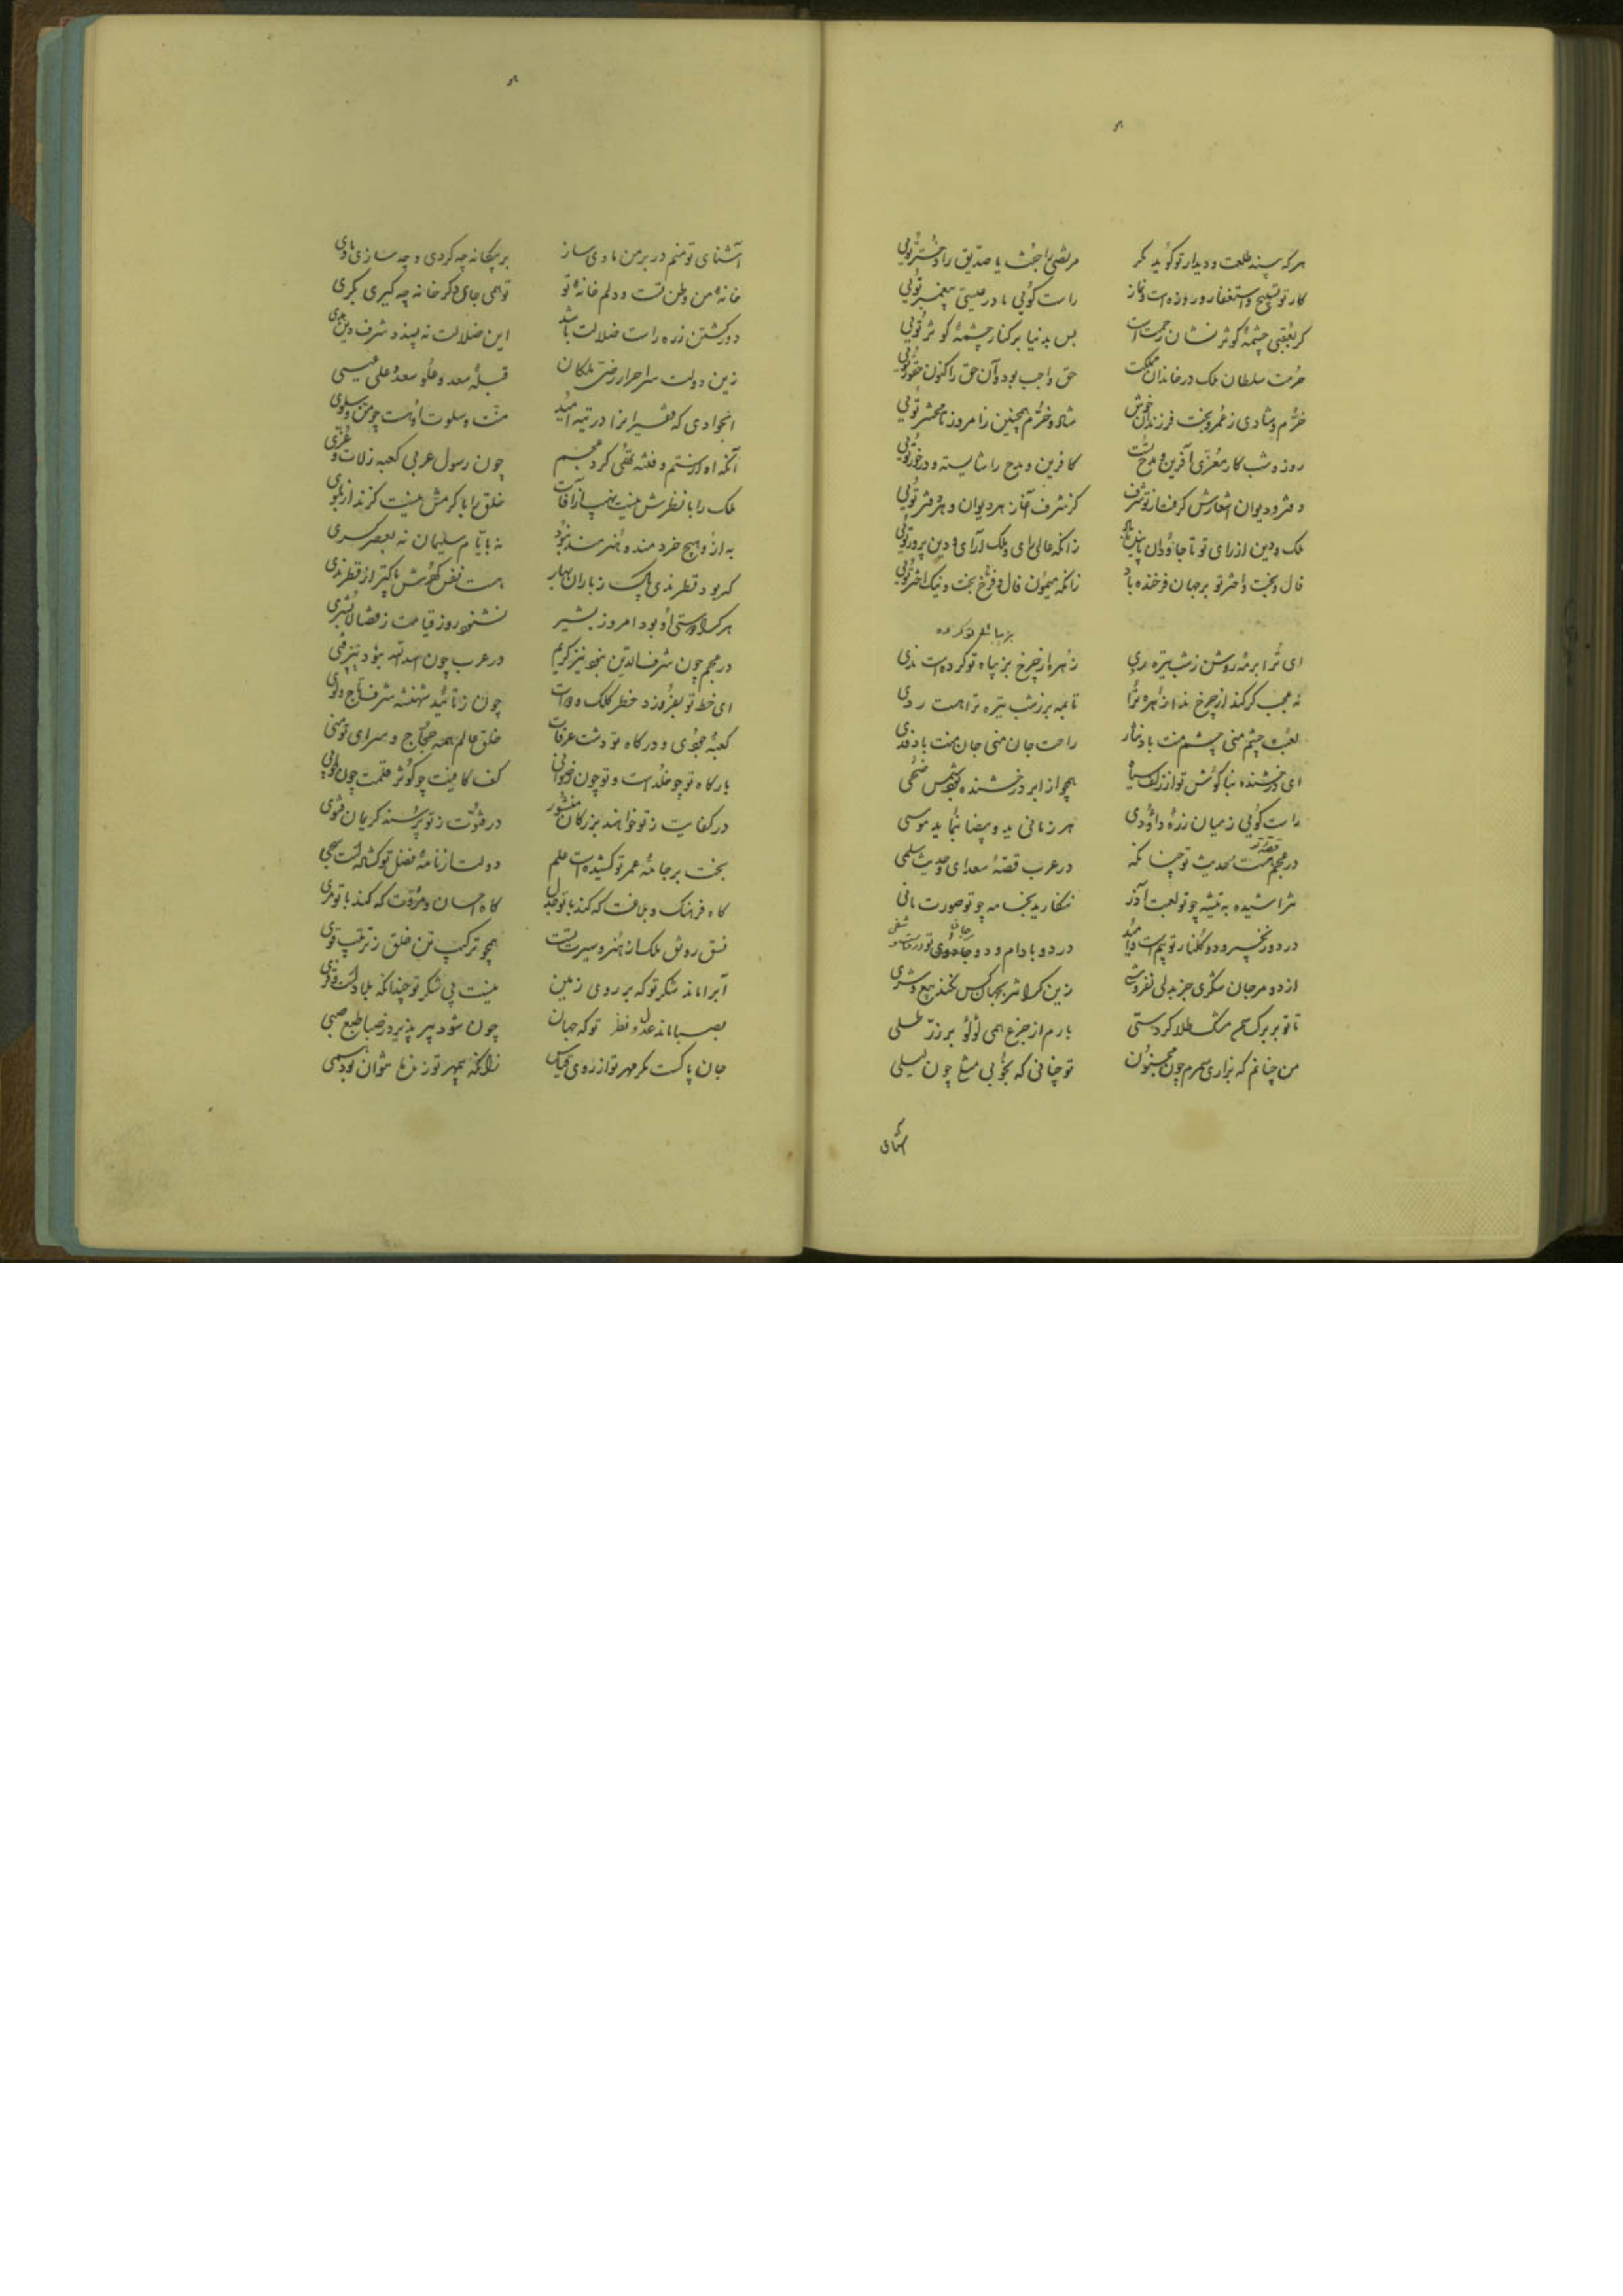 هرکه بیند طلعت و دیدار تو کوید مکر
مرتضی را جفت یا صدیق را دختر تویی
کار تو تسبیح و استغفار و روزه است و نماز
راست کویی مادر عیسی پیغمبر تویی
کر بعقبی چشمهٔ کوثر نشان رحمت است
پس بدنیا بر کنار چشمهٔ کوثر تویی
حرمت سلطان ملک در خاندان مملکت
حق واجب بود و آن حق را کنون حقور تویی
خرم و شادی ز عمر و بخت فرزندان خویش
شاد و خرم همچنین زامروز تا محشر تویی
روز و شب کار معزی آفرین و مدح تست
کافرین و مدح را شایسته و درخور تویی
دفتر و دیوان اشعارش کرفت از تو شرف
کز شرف آغاز هر دیوان و هر دفتر تویی
ملک و دین از رای تو تا جاودان پاینده باد
زانکه عالی رای و ملک آرای و دین پرور تویی
فال و بخت و اختر تو بر جهان فرخنده باد
زانکه میمون فال و فرخ بخت و نیک اختر تویی
ای ترا بر مه روشن ز شب تیره ردی
زهره از چرخ بزیباه تو کرده است ندی
نه عجب کر کند از چرخ ندا زهره ترا
تا بمه بر ز شب تیره ترا هست ردی
لعبت چشم منی چشم منت باد نثار
راحت جان منی جان منت باد فدی
ای درخشنده بناکوش تو از زلف سیاه
همچو از ابر درخشنده بود شمس ضحی
راست کویی ز میان زره داودی
هر زمانی ید و بیضا بنماید موسی
در عجم هست حدیث تو چنانکه
در عرب قصهٔ سعدای و حدیث سلمی
نتراشیده به تیشه چو تو لعبت آذر
ننکاریده بخامه چو تو صورت مانی
در دو رنجیر و دو کلنار تو بیم است و امید
در دو بادام و دو جادوی تو
از دو مرجان شکری جز بدلی نفروشی
زین کرانتر بجهان کس نکند بیع و شری
تا تو بر برک سمن مشک طلا کردستی
بارم از جزع همی لولو بر زر طلی
من چنانم که بزاری سمرم چون مجنون
تو چنانی که بخوبی مثلی چون لیلی
آشنای تو منم در بر من ماوی ساز
بر بیکانه چه کردی و چه سازی ماوی
خانهٔ من وطن تست و دلم خانهٔ تو
تو همی جای دکر خانه چه کیری بکری
دور کشتن ز ره راست ضلالت باشد
این ضلالت نه پسندد شرف دین هدی
زین دولت سر احرار رضی ملکان
قبلهٔ سعد و علو سعد علی عیسی
انجوادی که فقیران را در تیه امید
منت و سلوت او هست چو من و سلوی
آنکه او از ستم و فتنه تهی کرد عجم
چون رسول عربی کعبه ز لات و عزی
ملک را با نظرش نیست نهیب از آفات
خلق را با کرمش نیست کزند از بلوی
به از و هیچ خردمند و هنرمند نبود
نه بایام سلیمان نه بعصر کسری
کر بود قطر ندی پاک ز باران بهار
هست نفس کهرش پاکتر از قطر ندی
هرکرا دوستی او بود امروز بشیر
نشنود روز قیامت ز فضا لابشری
در عجم چون شرف الدین نبود نیز کریم
در عرب چون اسد الله نبود نیز فتی
ای خط تو بفزود خطر کلک و دوات
چون ز تائید شهنشه شرف تاج و لوی
کعبهٔ جودی و درکاه تو دشت عرفات
خلق عالم همه حجاج و سرای تو منی
بارکاه تو چو خلد است و تو چون رضوانی
کف کافیت چو کوثر قلمت چون طوبی
در کفایت ز تو خواهند بزرکان منشور
در فتوت ز تو پرسند کریمان فتوی
بخت بر جامهٔ عمر تو کشیده است علم
دولت از نامهٔ فضل تو کشاده است سحی
کاه فرهنک و بلاغت که کند با تو جدل
کاه احسان و مروت که کند با تو مری
نسق رونق ملک از هنر و سیرت تست
همچو ترکیب تن خلق ز ترتیب قوی
آبرا ماند شکر تو که بر روی زمین
نیست بی شکر تو چندانکه بلاد است و قری
بصبا ماند عدل و نظر تو که جهان
چون شود پیر پذیرد ز صبا طبع صبی
جان پاکست مکر مهر تو از روی قیاس
زانکه بیمهر تو زنده نتوان بود همی